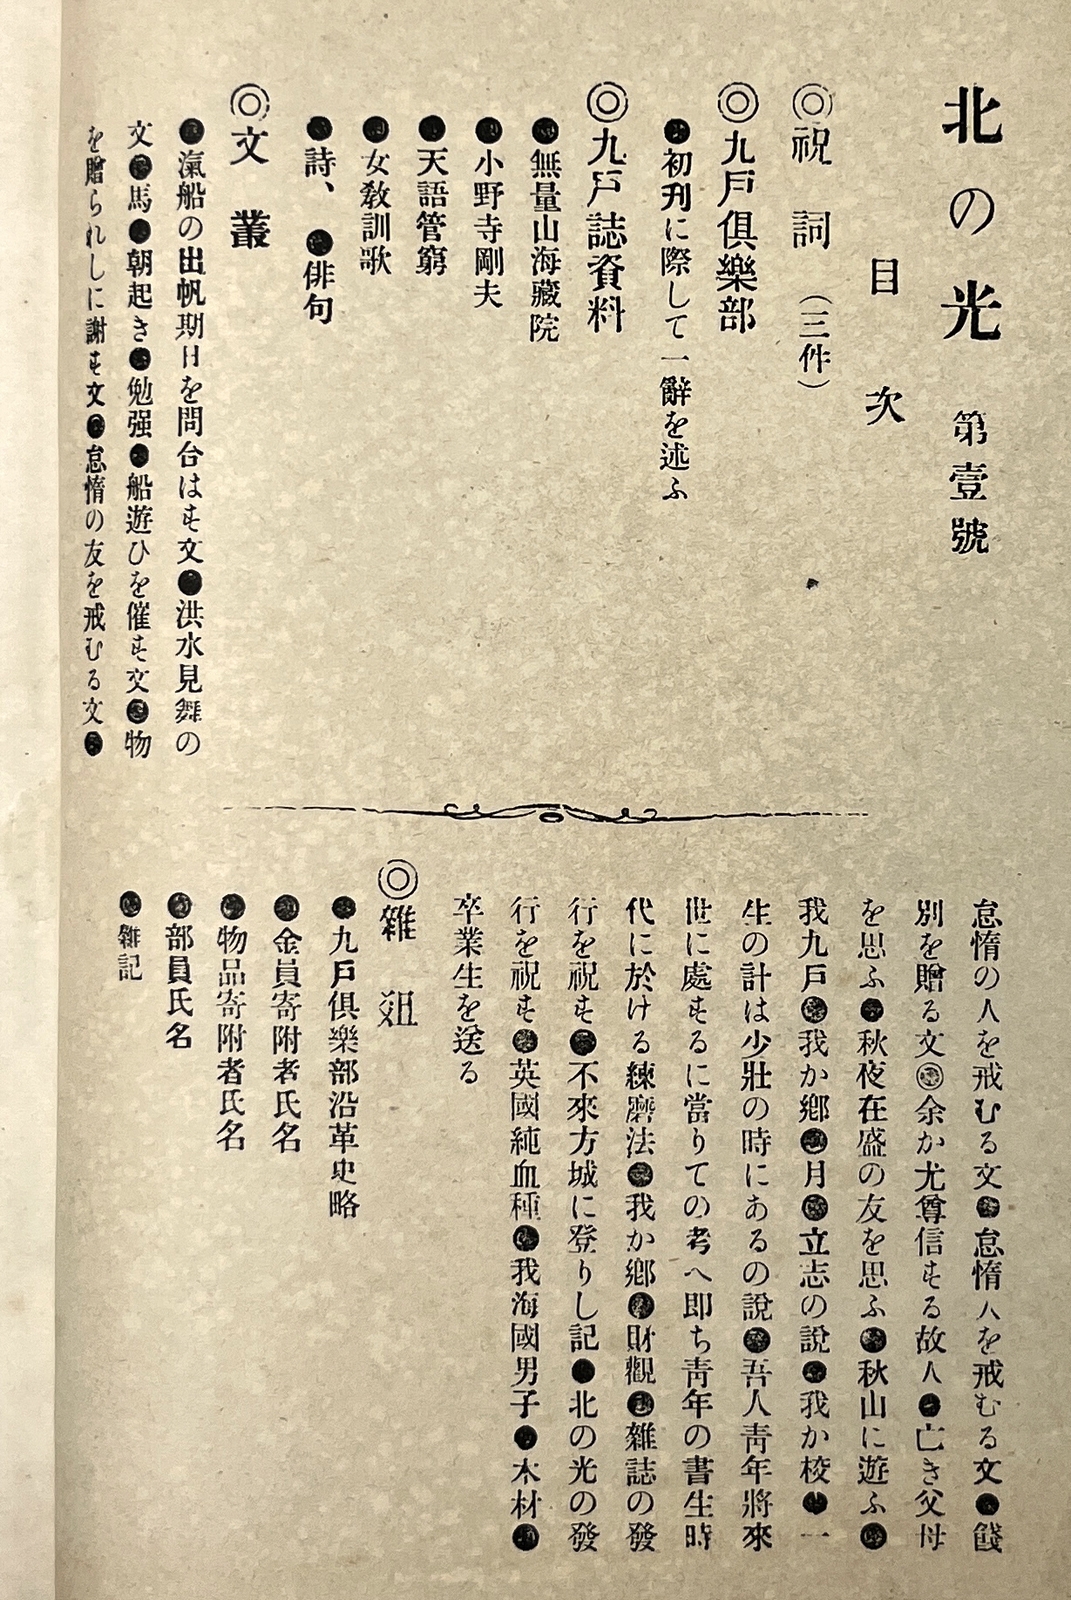 北の光 第壹號
目次
◎祝詞（三件）
◎九戶俱樂部
●初刋に際して一辭を述ふ
◎九戶誌資料
●無量山海藏院
●小野寺剛夫
●天語管窮
●女敎訓歌
●詩、●俳句
◎文叢
●滊船の出帆期日を問合はす文●洪水見舞の
文●馬●朝起き●勉强●船遊ひを催す文●物
を贈られしに謝す文●怠惰の友を戒むる文●
怠惰の人を戒むる文●怠惰人を戒むる文●餞
別を贈る文◎余か尤尊信する故人●亡き父母
を思ふ●秋夜在盛の友を思ふ●秋山に遊ふ●
我九戶●我か鄕●月●立志の說●我か校●一
生の計は少壯の時にあるの說●吾人靑年將來
世に處するに當りての考へ卽ち靑年の書生時
代に於ける練磨法●我か鄕●財觀●雜誌の發
行を祝す●不來方城に登りし記●北の光の發
行を祝す●英國純血種●我海國男子●木材●
卒業生を送る
◎雜爼
●九戶俱樂部沿革史略
●金員寄附者氏名
●物品寄附者氏名
●部員氏名
●雜記